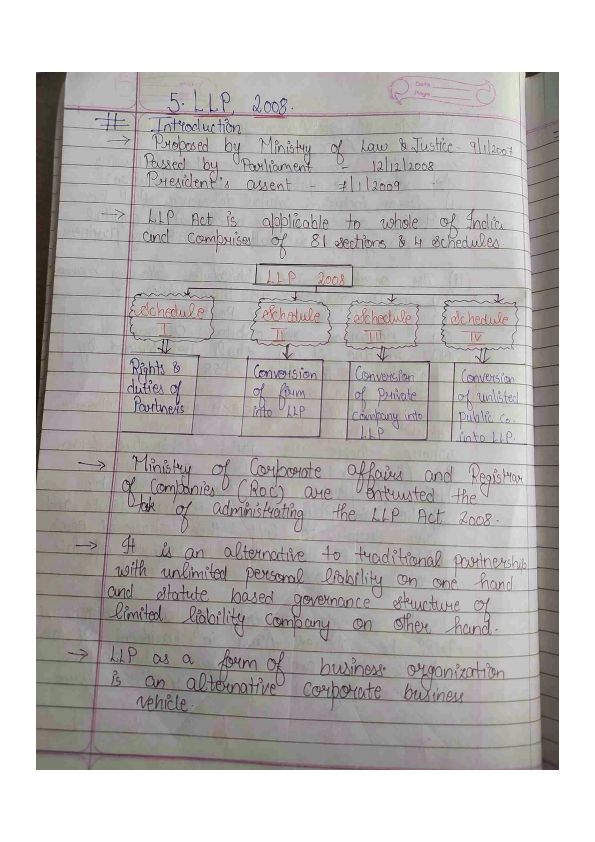 Date
Page
5. LLP, 2008.
# Introduction
→ Proposed by Ministry of Law & Justice - 9/1/2007
Passed by Parliament - 12/12/2008
President's assent - 7/1/2009
→ LLP Act is applicable to whole of India
and comprises of 81 sections & 4 schedules
LLP 2008
Schedule I
Schedule II
Schedule III
Schedule IV
Rights &
duties of
Partners
Conversion
of firm
into LLP
Conversion
of Private
Company into
LLP
Conversion
of unlisted
public Co.
into LLP.
→ Ministry of Corporate affairs and Registrar
of Companies (ROC) are entrusted the
task of administrating the LLP Act 2008.
→ It is an alternative to traditional partnership
with unlimited personal liability on one hand
and statute based governance structure of
limited liability company on other hand.
→ LLP as a form of business organization
is an alternative corporate business
vehicle.